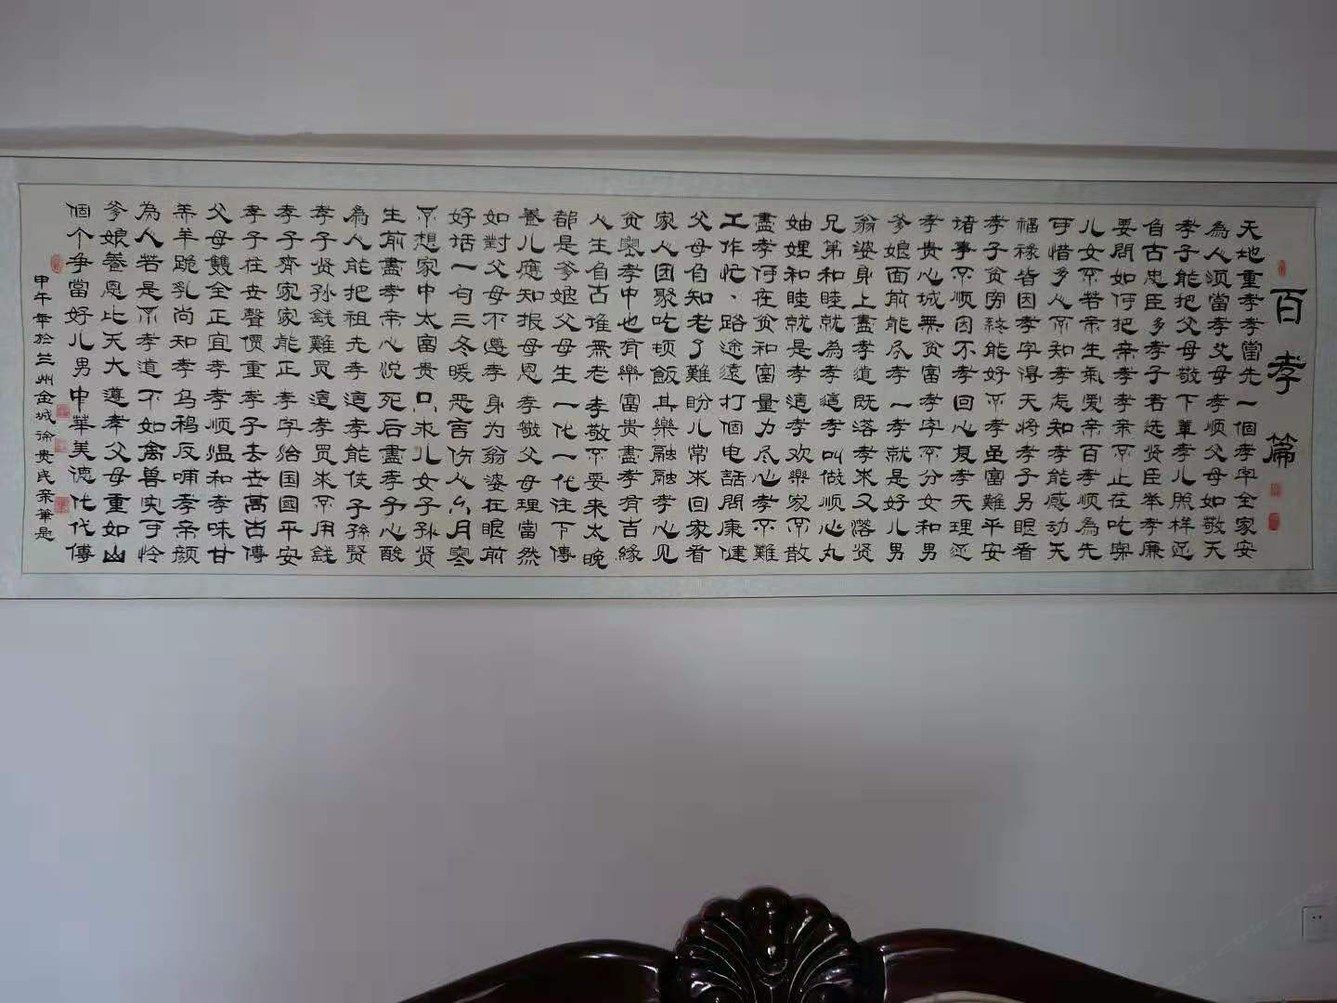 百孝篇
天地重孝孝當先一個孝字全家安
為人须當孝父母孝顺父母如敬天
孝子能把父母敬下輩孝儿照样还
自古忠臣多孝子君选贤臣举孝廉
要問如何把亲孝孝亲不止在吃穿
儿女不若亲生氣爱亲百孝顺為先
可惜多人不知孝怎知孝能感动天
福禄皆因孝字得天将孝子另眼看
孝子贫穷终能好不孝虽富難平安
诸事不顺因不孝回心复孝天理还
孝贵心城無贫富孝字不分女和男
爹娘面前能尽孝一孝就是好儿男
翁婆身上盡孝道既落孝来又落贤
兄弟和睦就為孝這孝叫做顺心丸
妯娌和睦就是孝這孝欢樂家不散
盡孝何在贫和富量力尽心孝不難
工作忙、路途遠打個电話問康健
父母自知老了難盼儿常来回家看
家人团聚吃顿飯其樂融融孝心见
贫窮孝中也有樂富贵盡孝有吉緣
人生自古谁無老孝敬不要来太晚
都是爹娘父母生一代一代往下傳
養儿應知报母恩孝敬父母理當然
如對父母不遵孝身为翁婆在眼前
好话一句三冬暖恶言伤人六月寒
不想家中太富贵只求儿女子孙贤
生前盡孝亲心悦死后盡孝子心酸
為人能把祖先孝這孝能使子孫賢
孝子贤孙钱難買這孝買来不用钱
孝子齊家家能正孝字治国國平安
孝子在世聲價重孝子去世萬古傳
父母雙全正宜孝孝顺温和孝味甘
羔羊跪乳尚知孝乌鸦反哺孝亲颜
為人若是不孝道不如禽兽实可怜
爹娘養恩比天大遵孝父母重如山
個个争當好儿男中華美德代代傳
甲午年於兰州金城徐贵民